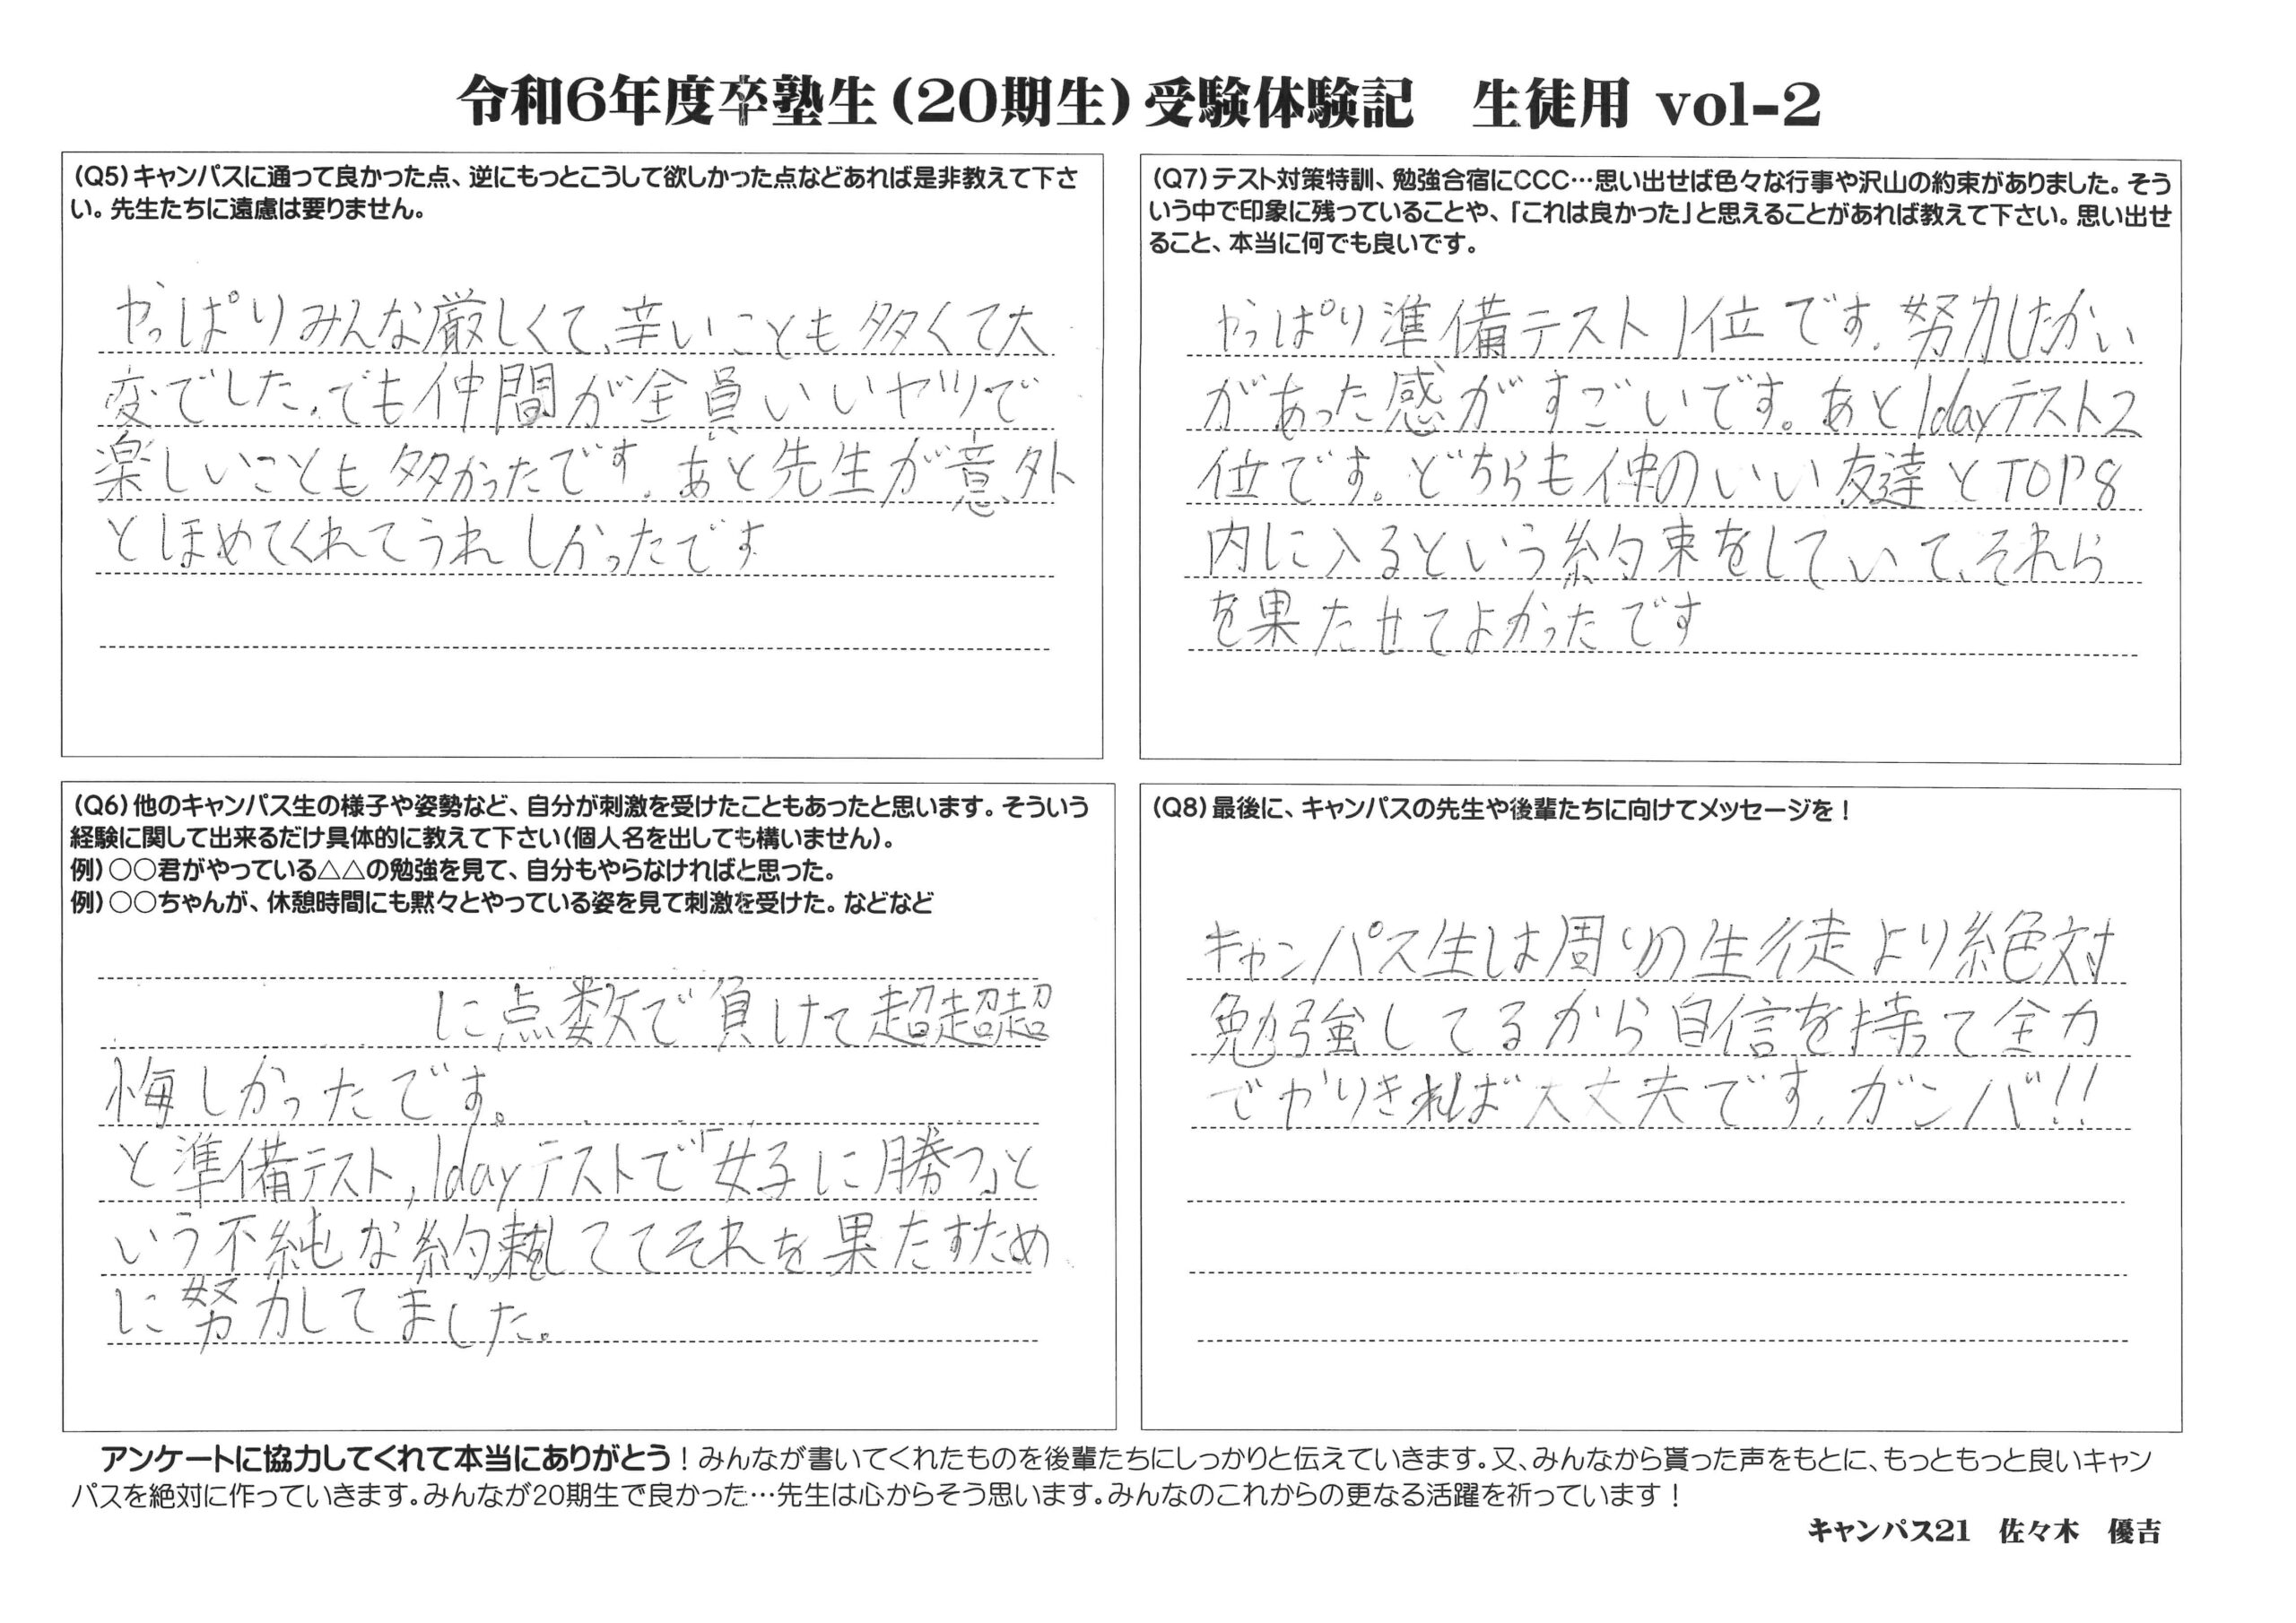 令和6年度卒塾生(20期生)受験体験記　生徒用 vol-2
(Q5)キャンパスに通って良かった点、逆にもっとこうして欲しかった点などあれば是非教えて下さ
い。先生たちに遠慮は要りません。
やっぱりみんな厳しくて、辛いことも多くて大
変でした。でも仲間が全員いいヤツで
楽しいことも多かったです。あと先生が意外
とほめてくれてうれしかったです
(Q6)他のキャンパス生の様子や姿勢など、自分が刺激を受けたこともあったと思います。そういう
経験に関して出来るだけ具体的に教えて下さい(個人名を出しても構いません)。
例)○○君がやっている△△の勉強を見て、自分もやらなければと思った。
例)○○ちゃんが、休憩時間にも黙々とやっている姿を見て刺激を受けた。などなど
に点数で負けて超超超
悔しかったです。
と準備テスト,1dayテストで「女子に勝つ」と
いう不純な約束しててそれを果たすため
に努力してました。
(Q7)テスト対策特訓、勉強合宿にCCC…思い出せば色々な行事や沢山の約束がありました。そう
いう中で印象に残っていることや、「これは良かった」と思えることがあれば教えて下さい。思い出せ
ること、本当に何でも良いです。
やっぱり準備テスト1位です。努力したかい
があった感がすごいです。あと1dayテスト2
位です。どちらも仲のいい友達とTOP8
内に入るという約束をしていて、それら
を果たせてよかったです
(Q8)最後に、キャンパスの先生や後輩たちに向けてメッセージを！
キャンパス生は周りの生徒より絶対
勉強してるから自信を持って全力
でやりきれば大丈夫です。ガンバ!!
アンケートに協力してくれて本当にありがとう！みんなが書いてくれたものを後輩たちにしっかりと伝えていきます。又、みんなから貰った声をもとに、もっともっと良いキャン
パスを絶対に作っていきます。みんなが20期生で良かった…先生は心からそう思います。みんなのこれからの更なる活躍を祈っています！
キャンパス21　佐々木　優吉